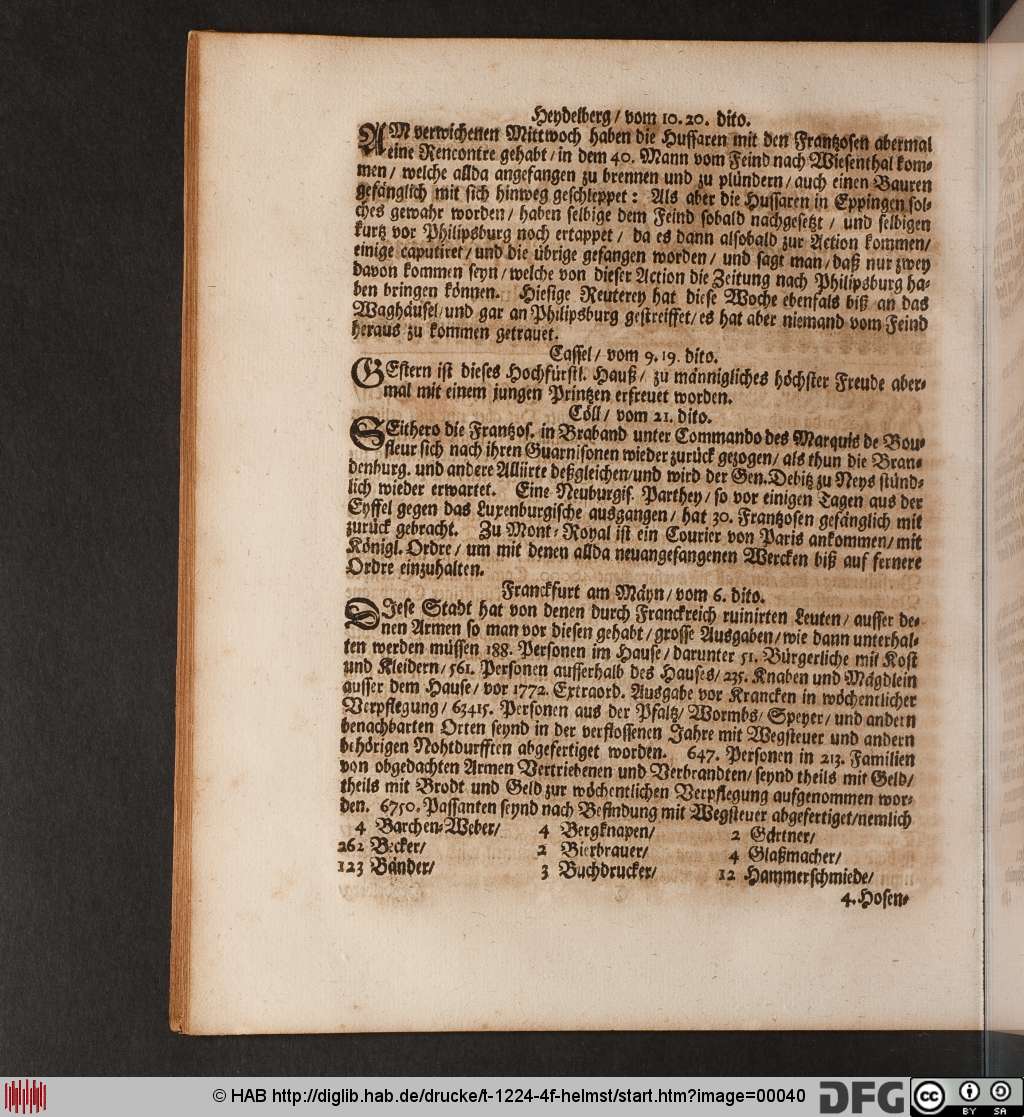 Heydelberg / vom 10. 20. dito.
AM verwichenen Mittwoch haben die Hussaren mit den Frantzosen abermal
eine Rencontre gehabt / in dem 40. Mann vom Feind nach Wiesenthal kom-
men / welche allda angefangen zu brennen und zu plündern / auch einen Bauren
gefänglich mit sich hinweg geschleppet: Als aber die Hussaren in Eppingen sol-
ches gewahr worden / haben selbige dem Feind sobald nachgesetzt / und selbigen
kurtz vor Philipsburg noch ertappet / da es dann alsobald zur Action kommen /
einige caputiret / und die übrige gefangen worden / und sagt man / daß nur zwey
davon kommen seyn / welche von dieser Action die Zeitung nach Philipsburg ha-
ben bringen können. Hiesige Reuterey hat diese Woche ebenfals biß an das
Waghäusel / und gar an Philipsburg gestreiffet / es hat aber niemand vom Feind
heraus zu kommen getrauet.
Cassel / vom 9. 19. dito.
GEstern ist dieses Hochfürstl. Hauß / zu männigliches höchster Freude aber-
mal mit einem jungen Printzen erfreuet worden.
Cöll / vom 21. dito.
SEithero die Frantzos. in Braband unter Commando des Marquis de Bou-
fleur sich nach ihren Guarnisonen wieder zurück gezogen / als thun die Bran-
denburg. und andere Alliirte deßgleichen / und wird der Gen. Debitz zu Neys stünd-
lich wieder erwartet. Eine Neuburgis. Parthey / so vor einigen Tagen aus der
Eyffel gegen das Luxenburgische ausgangen / hat 30. Frantzosen gefänglich mit
zurück gebracht. Zu Mont-Royal ist ein Courier von Paris ankommen / mit
Königl. Ordre / um mit denen allda neuangefangenen Wercken biß auf fernere
Ordre einzuhalten.
Franckfurt am Mäyn / vom 6. dito.
DIese Stadt hat von denen durch Franckreich ruinirten Leuten / ausser de-
nen Armen so man vor diesen gehabt / grosse Ausgaben / wie dann unterhal-
ten werden müssen 188. Personen im Hause / darunter 51. Bürgerliche mit Kost
und Kleidern / 561. Personen ausserhalb des Hauses / 235. Knaben und Mägdlein
ausser dem Hause / vor 1772. Extraord. Ausgabe vor Krancken in wöchentlicher
Verpflegung / 63415. Personen aus der Pfaltz / Wormbs / Speyer / und andern
benachbarten Orten seynd in der verflossenen Jahre mit Wegsteuer und andern
behörigen Nohtdurfften abgefertiget worden. 647. Personen in 213. Familien
von obgedachten Armen Vertriebenen und Verbrandten / seynd theils mit Geld /
theils mit Brodt und Geld zur wöchentlichen Verpflegung aufgenommen wor-
den. 6750. Passanten seynd nach Befindung mit Wegsteuer abgefertiget / nemlich
4 Barchen-Weber / 4 Bergknapen / 2 Gärtner /
262 Becker / 2 Bierbrauer / 4 Glaßmacher /
123 Bänder / 3 Buchdrucker / 12 Hammerschmiede /
4. Hosen-
© HAB http://diglib.hab.de/drucke/t-1224-4f-helmst/start.htm?image=00040
DFG
cc BY SA